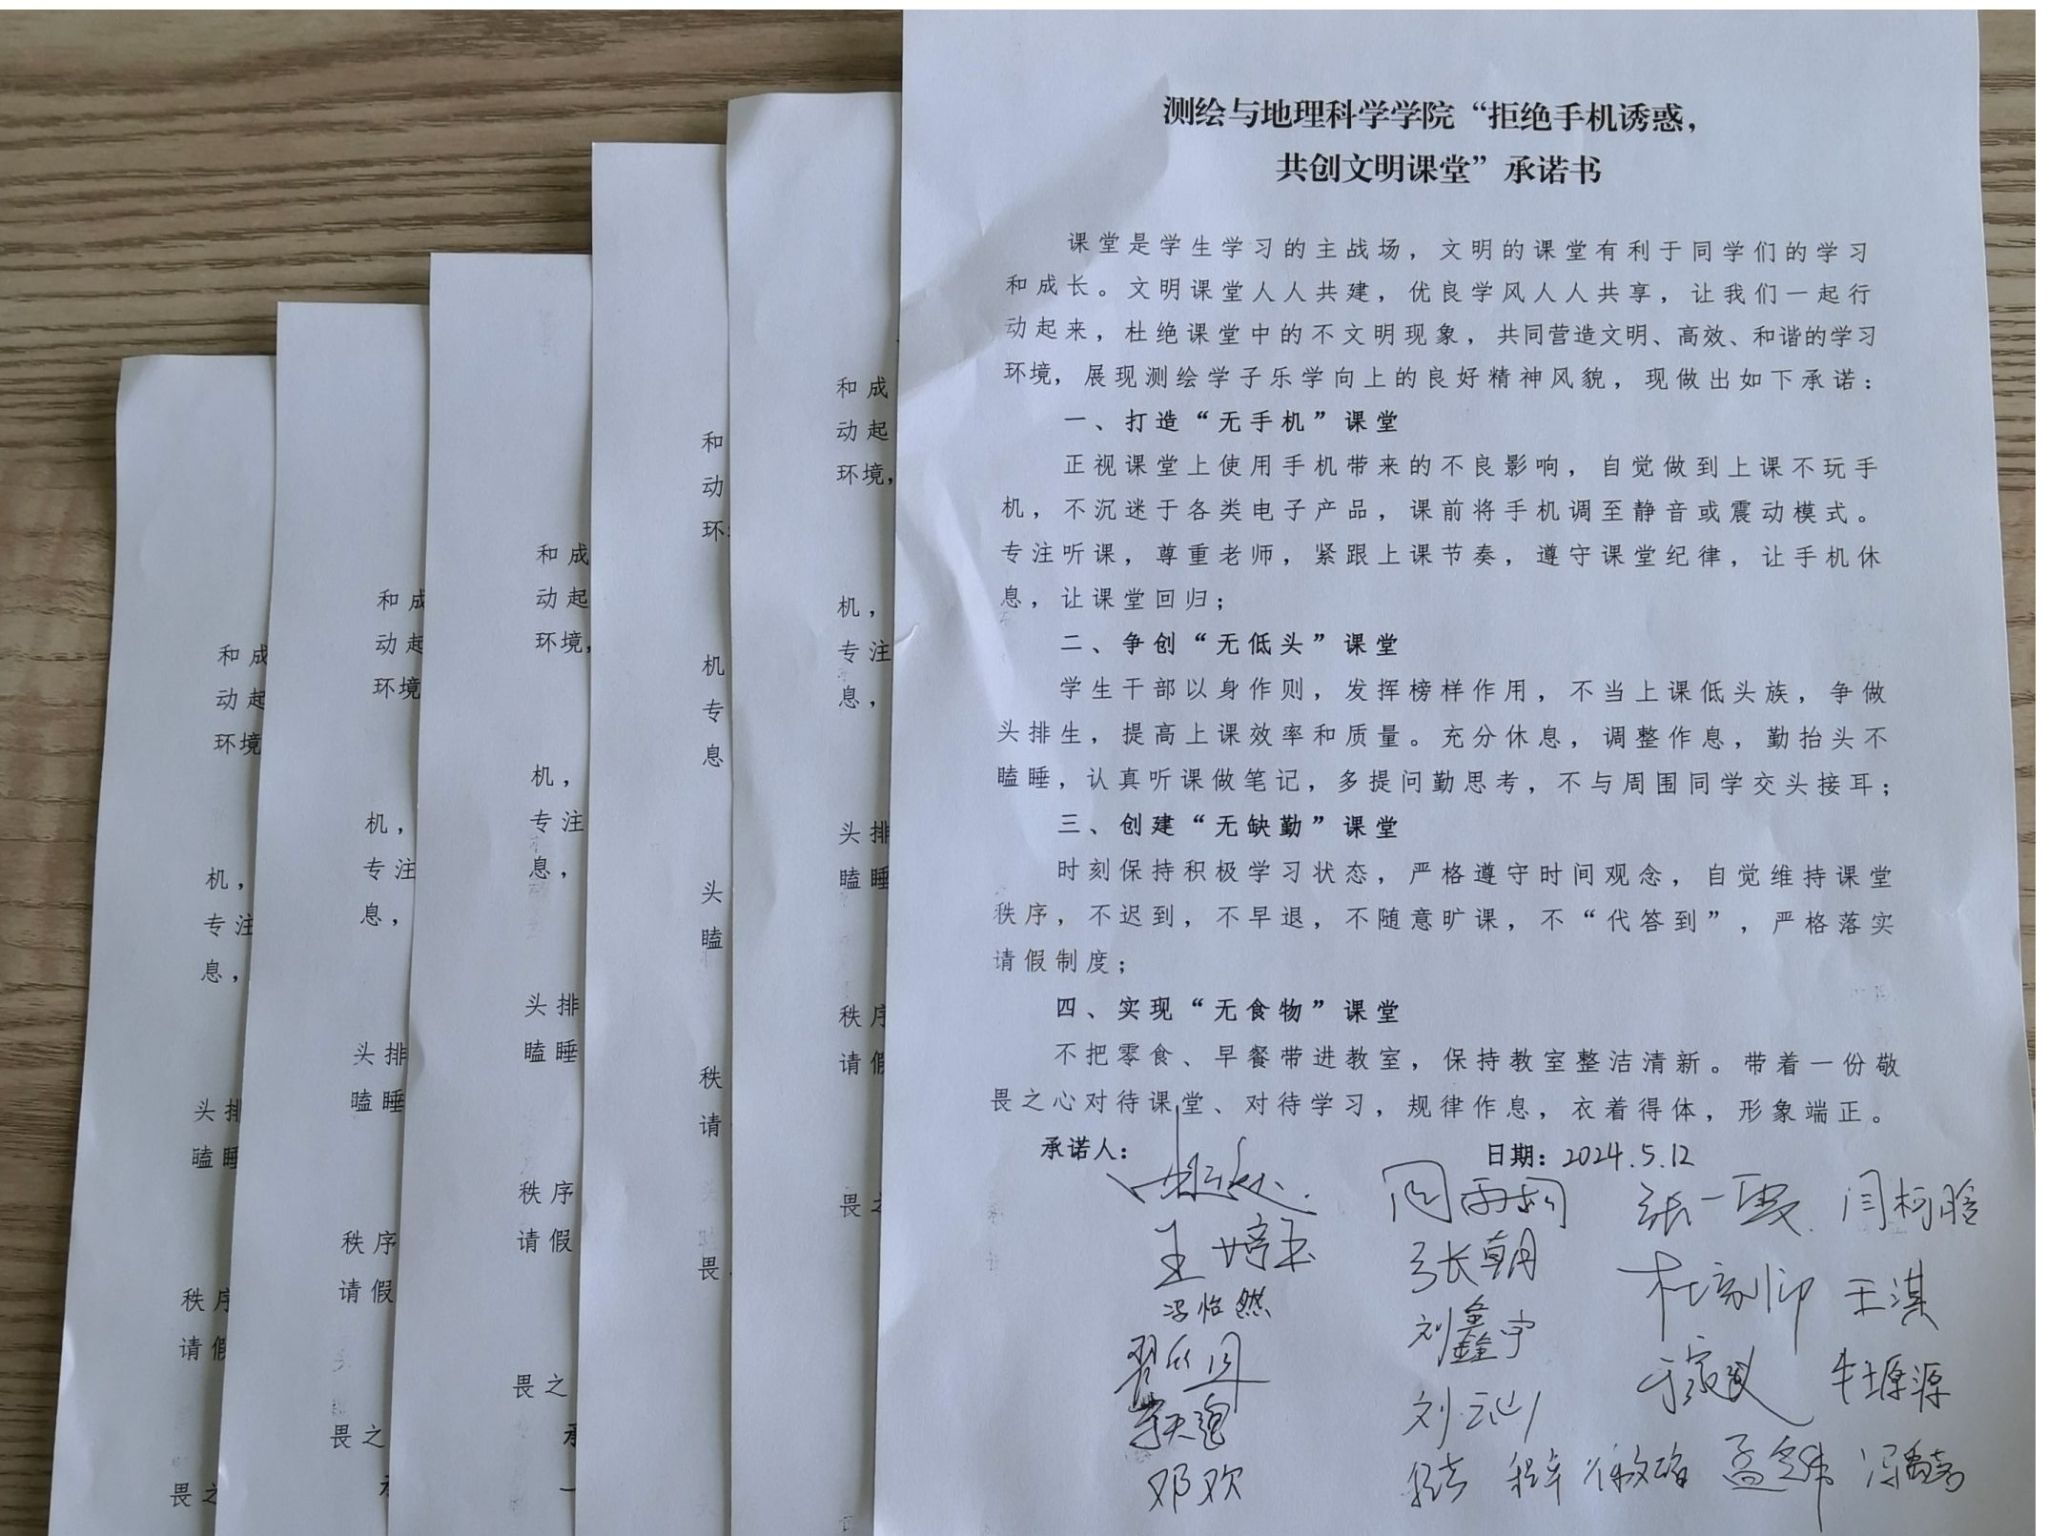 测绘与地理科学学院“拒绝手机诱惑，
共创文明课堂”承诺书
课堂是学生学习的主战场，文明的课堂有利于同学们的学习
和成长。文明课堂人人共建，优良学风人人共享，让我们一起行
动起来，杜绝课堂中的不文明现象，共同营造文明、高效、和谐的学习
环境，展现测绘学子乐学向上的良好精神风貌，现做出如下承诺：
一、打造“无手机”课堂
正视课堂上使用手机带来的不良影响，自觉做到上课不玩手
机，不沉迷于各类电子产品，课前将手机调至静音或震动模式。
专注听课，尊重老师，紧跟上课节奏，遵守课堂纪律，让手机休
息，让课堂回归；
二、争创“无低头”课堂
学生干部以身作则，发挥榜样作用，不当上课低头族，争做
头排生，提高上课效率和质量。充分休息，调整作息，勤抬头不
瞌睡，认真听课做笔记，多提问勤思考，不与周围同学交头接耳；
三、创建“无缺勤”课堂
时刻保持积极学习状态，严格遵守时间观念，自觉维持课堂
秩序，不迟到，不早退，不随意旷课，不“代答到”，严格落实
请假制度；
四、实现“无食物”课堂
不把零食、早餐带进教室，保持教室整洁清新。带着一份敬
畏之心对待课堂、对待学习，规律作息，衣着得体，形象端正。
承诺人： 日期：2024.5.12
张一雯 闫柯晗
王婷玉 张朝 王淇
冯怡然 刘鑫宇
牛塬源
刘云山
邓欢
和成
动起
环境，
机，
专注
息，
头排
瞌睡
秩序
请假
畏之
和
动
环
机
专
息
头
瞌
秩
请
畏
和成
动起
环境，
机，
专注
息，
头排
瞌睡
秩序
请假
畏之
承
和成
动起
环境
机，
专注
息，
头排
瞌睡
秩序
请假
畏之
和成
动起
环境
机，
专注
息，
头排
瞌睡
秩序
请假
畏之